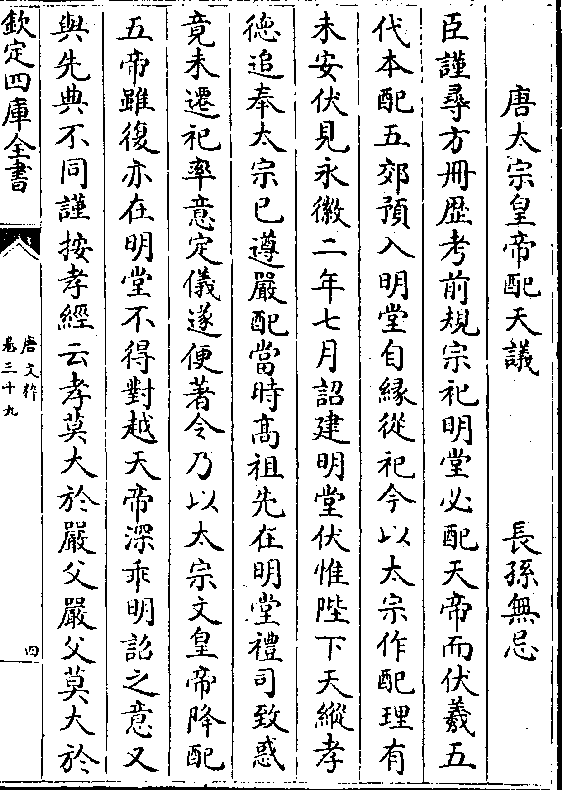 唐太宗皇帝配天議　長孫無忌
臣謹尋方冊歷考前規宗祀明堂必配天帝而伏羲五
代本配五郊預入明堂自緣從祀今以太宗作配理有
未安伏見永徽二年七月詔建明堂伏惟陛下天縱孝
德追奉太宗已遵嚴配當時高祖先在明堂禮司致惑
竟未遷祀率意定儀遂便著令乃以太宗文皇帝降配
五帝雖復亦在明堂不得對越天帝深乖明詔之意又
與先典不同謹按孝經云孝莫大於嚴父嚴父莫大於
欽定四庫全書
唐文粹
卷三十九
四